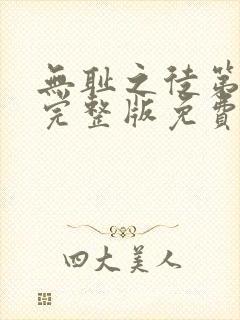 無耻之徒第
完整版免費
四大美人